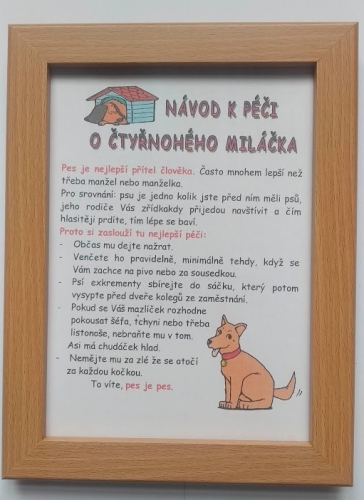 NÁVOD K PÉČI
O ČTYŘNOHÉHO MILÁČKA
Pes je nejlepší přítel člověka. Často mnohem lepší než
třeba manžel nebo manželka.
Pro srovnání: psu je jedno kolik jste před ním měli psů,
jeho rodiče Vás zřídkakdy přijedou navštívit a čím
hlasitěji prdíte, tím lépe se baví.
Proto si zaslouží tu nejlepší péči:
- Občas mu dejte nažrat.
- Venčete ho pravidelně, minimálně tehdy, když se
Vám zachce na pivo nebo za sousedkou.
- Psí exkrementy sbírejte do sáčku, který potom
vysypte před dveře kolegů ze zaměstnání.
- Pokud se Váš mazlíček rozhodne
pokousat šéfa, tchyni nebo třeba
listonoše, nebraňte mu v tom.
Asi má chudáček hlad.
- Nemějte mu za zlé že se otočí
za každou kočkou.
To víte, pes je pes.